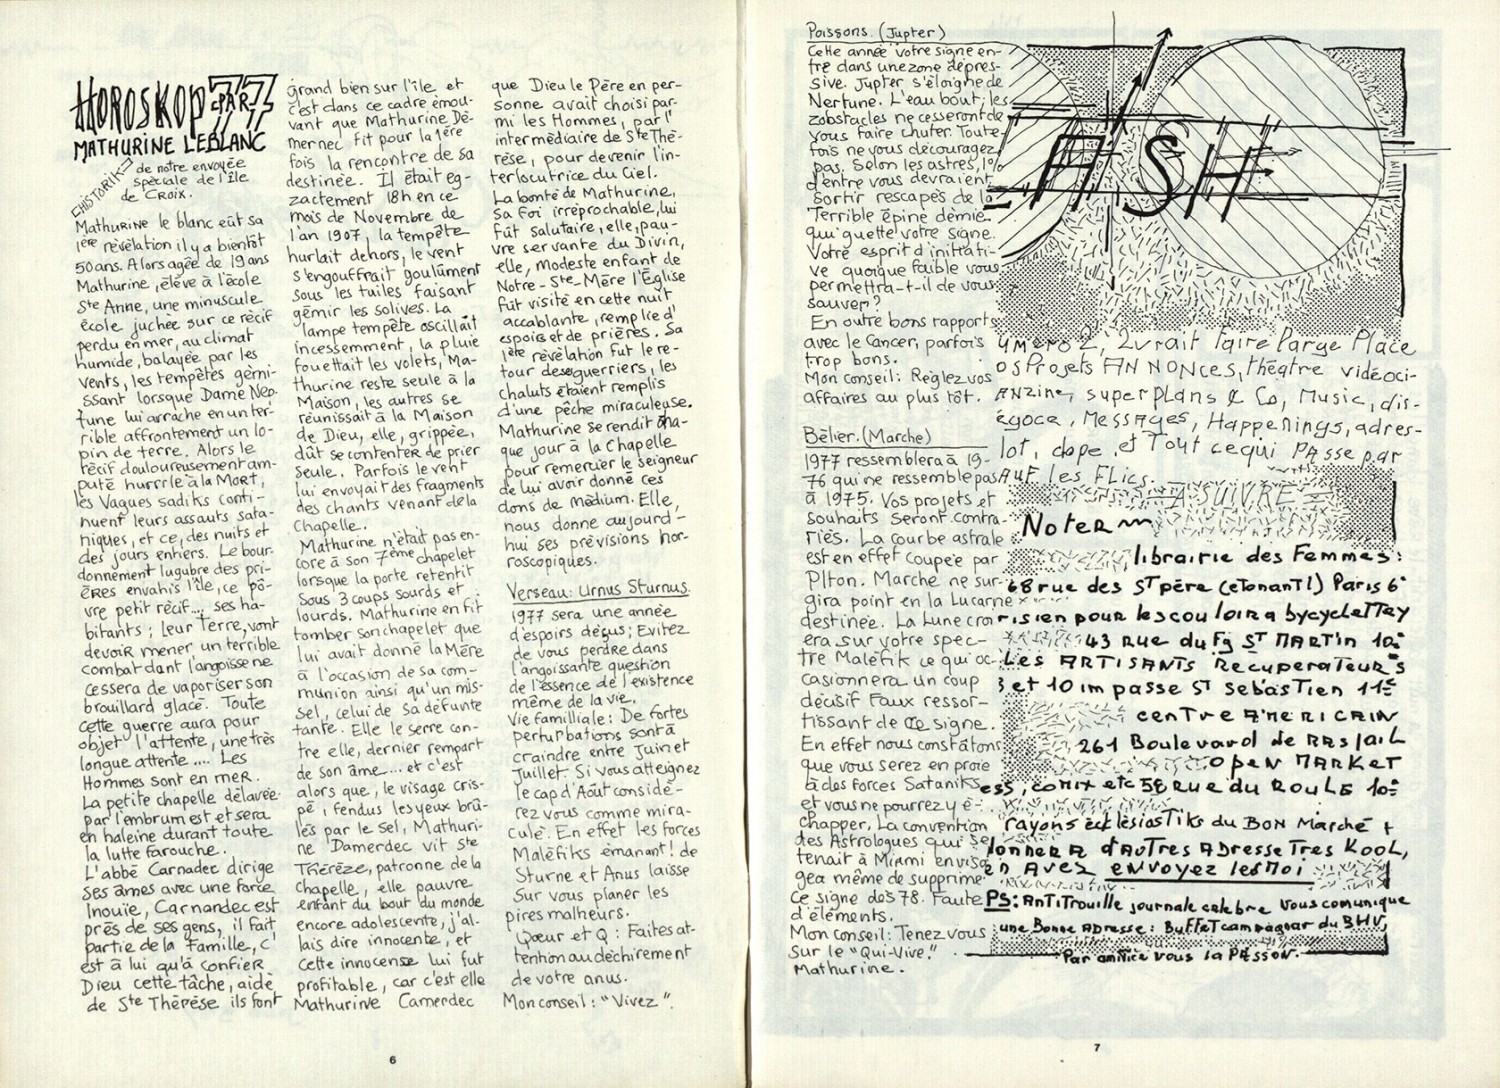 HOROSKOP 77
PAR
MATHURINE LEBLANC
CHISTORIK
de notre envoyée
spéciale de l'île
de CROIX.
Mathurine le blanc eût sa
1ère révélation il y a bientôt
50 ans. Alors agée de 19 ans
Mathurine, élève à l'école
Ste Anne, une minuscule
école juchée sur ce récif
perdu en mer, au climat
humide, balayée par les
vents, les tempêtes gérni-
ssant lorsque Dame Nep-
tune lui arrache en un ter-
rible affrontement un lo-
pin de terre. Alors le
récif douloureusement am-
puté hurrle à la MORT,
les Vagues sadiks conti-
nuent leurs assauts sata-
niques, et ce, des nuits et
des jours entiers. Le bour-
donnement lugubre des pri-
ères envahis l'île, ce pô-
vre petit récif... ses ha-
bitants; leur Terre, vont
devoir mener un terrible
combat dant l'angoisse ne
cessera de vaporiser son
brouillard glacé. Toute
cette guerre aura pour
objet l'attente, une très
longue attente.... Les
Hommes sont en mer.
La petite chapelle délavée
par l'embrum est et sera
en haleine durant toute
la lutte farouche.
L'abbé Carnadec dirige
ses âmes avec une force
Inouïe, Carnandec est
près de ses gens, il fait
partie de la Famille, c'
est à lui qu'à confier
Dieu cette tâche, aidé
de Ste Thérèse ils font
grand bien sur l'île et
c'est dans ce cadre émou-
vant que Mathurine Dé-
mernec fit pour la 1ère
fois la rencontre de sa
destinée. Il était eg-
zactement 18h en ce
mois de Novembre de
l'an 1907, la tempête
hurlait dehors, le vent
s'engouffrait goulûment
sous les tuiles faisant
gémir les solives. La
lampe tempête oscillait
incessemment, la pluie
fouettait les volets, Ma-
thurine reste seule à la
Maison, les autres se
réunissait à la Maison
de Dieu, elle, grippée,
dût se contenter de prier
seule. Parfois le vent
lui envoyait des fragments
des chants venant de la
Chapelle.
Mathurine n'était pas en-
core à son 7ème chapelet
lorsque la porte retentit
Sous 3 coups sourds et
lourds. Mathurine en fit
tomber son chapelet que
lui avait donné la Mère
à l'occasion de sa com-
munion ainsi qu'un mis-
sel, celui de sa défunte
tante. Elle le serre con-
tre elle, dernier rempart
de son âme... et c'est
alors que, le visage cris-
pé, fendus les yeux brû-
lés par le sel, Mathuri-
ne Damerdec vit Ste
Thérèze, patronne de la
chapelle, elle pauvre
enfant du bout du monde
encore adolescente, j'al-
lais dire innocente, et
cette innocense lui fut
profitable, car c'est elle
Mathurine Camerdec
que Dieu le Père en per-
sonne avait choisi par-
mi les Hommes, par l'
intermédiaire de Ste Thé-
rèse, pour devenir l'in-
terlocutrice du Ciel.
La bonté de Mathurine,
sa foi irréprochable, lui
fût salutaire, elle, pau-
vre servante du Divin,
elle, modeste enfant de
Notre-Ste-Mère l'Eglise
fût visité en cette nuit
accablante, remplie d'
espoirs et de prières. Sa
1ère révélation fut le re-
tour des guerriers, les
chaluts étaient remplis
d'une pêche miraculeuse.
Mathurine se rendit cha-
que jour à la Chapelle
pour remercier le seigneur
de lui avoir donné ces
dons de médium. Elle,
nous donne aujourd-
hui ses prévisions hor-
roscopiques.
Verseau: Urnus Sturnus.
1977 sera une année
d'espoirs déçus; Evitez
de vous perdre dans
l'angoissante question
de l'essence de l'existence
même de la vie.
Vie familliale: De fortes
perturbations sont à
craindre entre Juin et
Juillet. Si vous atteignez
le cap d'Août considé-
rez vous comme mira-
culé. En effet les forces
Maléfiks émanant! de
Sturne et Anus laisse
Sur vous planer les
pires malheurs.
Qœur et Q: Faites at-
tention au déchirement
de votre anus.
Mon conseil: "Vivez".
6
Poissons. (Jupter)
Cette année votre signe en-
tre dans une zone dépres-
sive. Jupter s'éloigne de
Nertune. L'eau bout; les
zobstacles ne cesseront de
vous faire chuter. Toute-
fois ne vous découragez
pas. Selon les astres, 1%
d'entre vous devraient
sortir rescapés de la
Terrible épine démie
qui guette votre signe.
Votre esprit d'inittiati-
ve quoique faible vous
permettra-t-il de vous
sauver?
En outre bons rapports
avec le Cancer, parfois
trop bons.
Mon conseil: Réglez vos
affaires au plus tôt.
Bélier. (Marche)
1977 ressemblera à 19-
76 qui ne ressemble pas
à 1975. Vos projets et
souhaits seront contra-
riés. La courbe astrale
est en effet coupée par
Plton. Marche ne sur-
gira point en la Lucarne
destinée. La Lune croi-
era sur votre spec-
tre Maléfik ce qui oc-
casionnera un coup
décisif faux ressor-
tissant de ce signe.
En effet nous constatons
que vous serez en proie
à des forces Sataniks
et vous ne pourrez y é-
chapper. La convention
des Astrologues qui se
tenait à Miami envisa
gea même de supprimé
Ce signe dès 78. Faute
d'éléments.
Mon conseil: Tenez vous
sur le "Qui-Vive."
Mathurine.
ASH
uméro 2, 2vrait faire large Place
os Projets ANNONCES, théatre vidéoci-
ANZine, superplans & Co, Music, dis-
égoce, Messages, Happenings, adres-
lot, dope et Tout ce qui PAsse par
AUF les FLICS.
= A SUIVRE =
Noter
librairie des Femmes:
68 rue des St père (etonant!) Paris 6e
risien pour les cou loira bycyclettey
43 Rue du Fg ST MARTIN 10e
Les ARTISANTS Recuperateurs
3 et 10 impasse St Sebastien 11e
centre AMERICAIN
261 Boulevard de RASpAIL
Open MARKET
ess, comix etc 58 rue du ROULE 10e
rayons ècklèsiastiks du BON Marché +
donnera d'AUTRES ADResse Tres KOOL,
en Avez envoyez les moi
PS: ANTITrouille journale celebre vous comunique
une Bonne ADresse: Buffet campagnar du BHV,
Par amitié vous la PAsson.
7